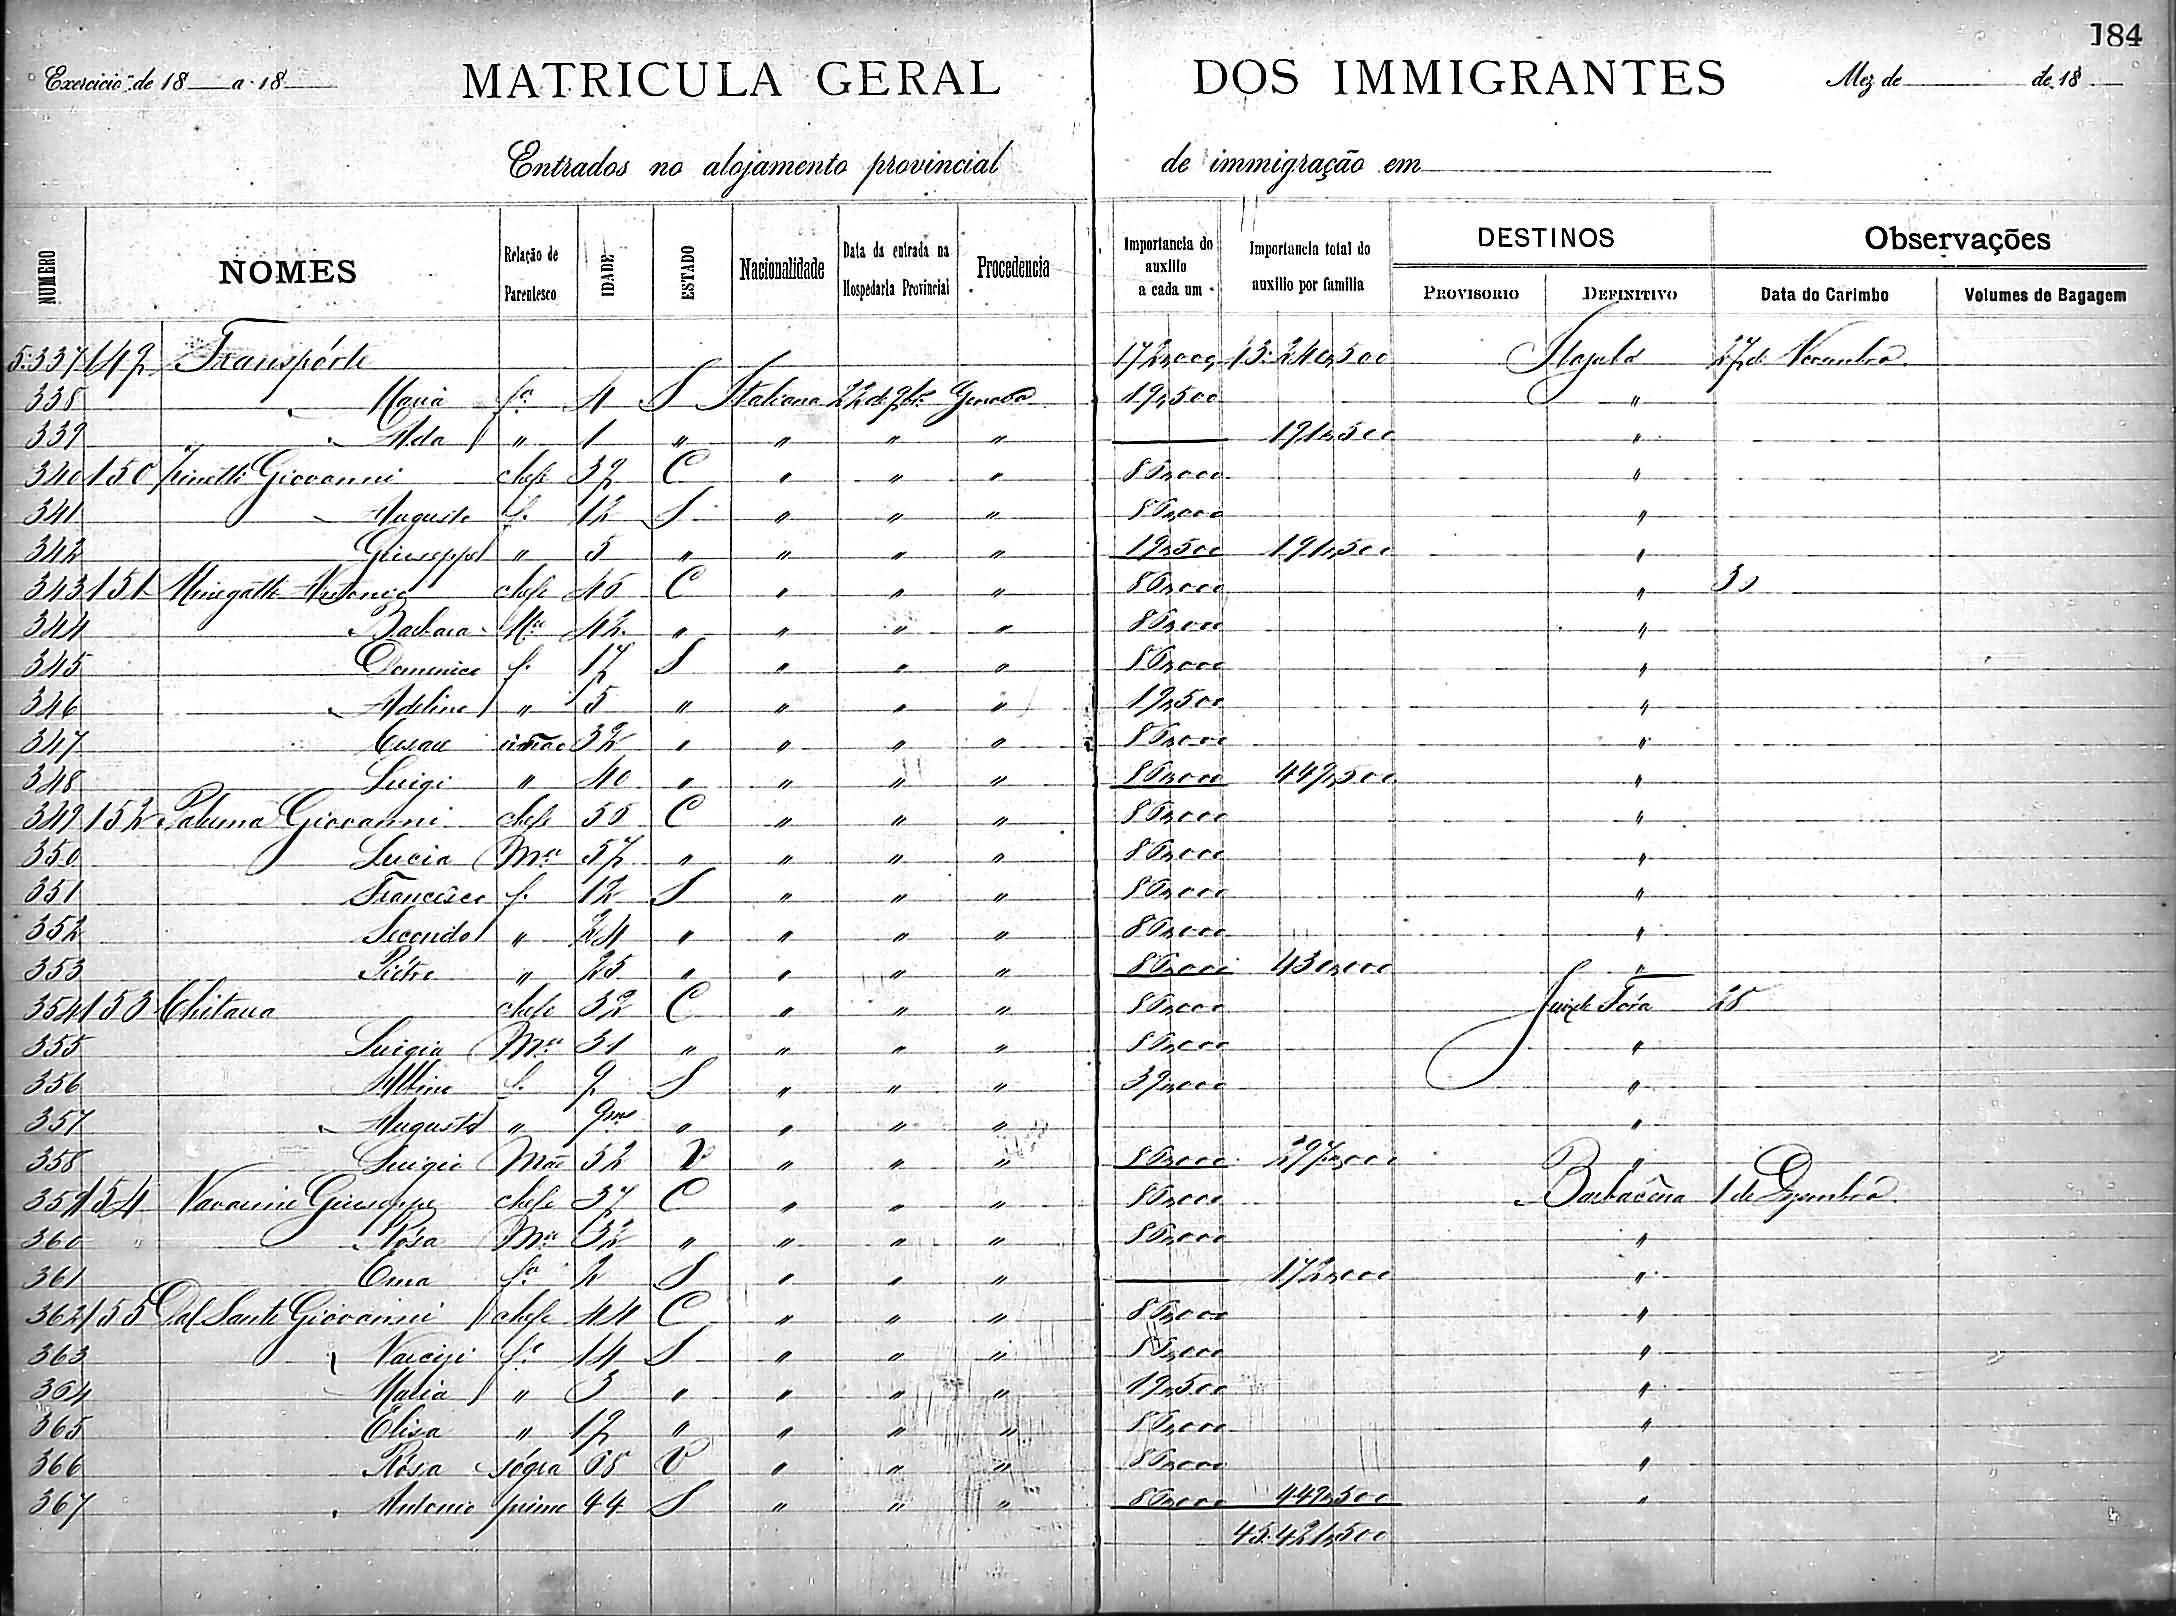 184
Exercicio de 18 a 18 MATRICULA GERAL DOS IMMIGRANTES Mez de de 18
Entrados no alojamento provincial de immigração em
NUMERO NOMES Relação de Parentesco IDADE ESTADO Nacionalidade Data da entrada na Hospedaria Provincial Procedencia Importancia do auxilio a cada um Importancia total do auxilio por familia DESTINOS PROVISORIO DEFINITIVO Observações Data do Carimbo Volumes de Bagagem
5:337 149 Transpórte 172,000 13:240,500 27 de Novembro
338 Maria fa 4 S Italiana 22 de 9br. Genova 19,500 "
339 Ada " 1 " " " " 191,500 "
340 150 Giovanni chefe 39 C " " " 86,000 "
341 Augusto f. 12 S " " " 86,000 "
342 Giuseppe " 5 " " " " 19,500 191,500 "
343 151 Minegatti Antonio chefe 46 C " " " 86,000 " 30
344 Barbara Mer 42 " " " " 86,000 "
345 Domenico f. 17 S " " " 86,000 "
346 Adelino " 5 " " " " 19,500 "
347 Cesare irmão 32 " " " " 86,000 "
348 Luigi " 40 " " " " 86,000 449,500 "
349 152 Paluma Giovanni chefe 56 C " " " 86,000 "
350 Lucia Mer 57 " " " " 86,000 "
351 Francisco f. 12 S " " " 86,000 "
352 Secondo " 24 " " " " 86,000 "
353 Piétro " 25 " " " " 86,000 430,000 "
354 153 chefe 32 C " " " 86,000 Juiz de Fóra 28
355 Luigia Mer 31 " " " " 86,000 "
356 Albino f. 9 S " " " 39,000 "
357 Augusto " 9ms " " " " "
358 Luigia Mãe 52 V " " " 86,000 297,000 "
359 154 Giuseppe chefe 37 C " " " 86,000 Barbacêna 1 de Dezembro
360 Rósa Mer 32 " " " " 86,000 "
361 Ema fa 2 S " " " 172,000 "
362 155 Dal Santo Giovanni chefe 44 C " " " 86,000 "
363 fo 14 S " " " 86,000 "
364 Maria " 3 " " " " 19,500 "
365 Elisa " 19 " " " " 86,000 "
366 Rósa sógra 68 V " " " 86,000 "
367 Antonio primo 44 S " " " 86,000 449,500 "
421,500